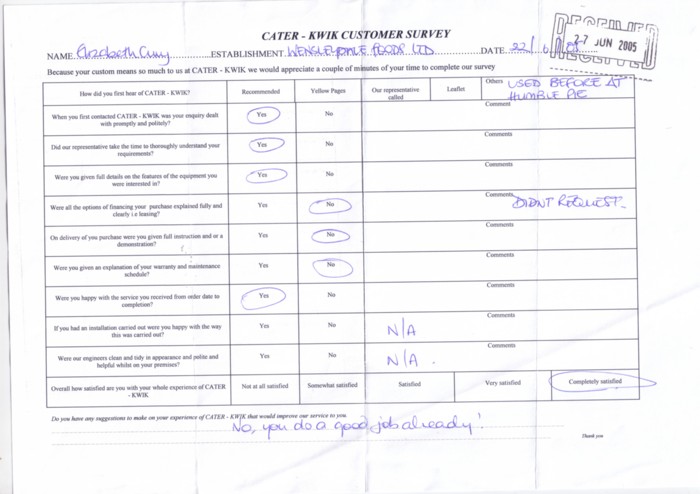 CATER - KWIK CUSTOMER SURVEY
NAME Elizabeth ESTABLISHMENT WENSLEYDALE FOODS LTD DATE 22/6
27 JUN 2005
Because your custom means so much to us at CATER - KWIK we would appreciate a couple of minutes of your time to complete our survey
How did you first hear of CATER - KWIK? Recommended Yellow Pages Our representative called Leaflet Others USED BEFORE AT HUMBLE PIE
When you first contacted CATER - KWIK was your enquiry dealt with promptly and politely? Yes No Comment
Did our representative take the time to thoroughly understand your requirements? Yes No Comments
Were you given full details on the features of the equipment you were interested in? Yes No Comments
Were all the options of financing your purchase explained fully and clearly i.e leasing? Yes No Comments DIDNT REQUEST
On delivery of you purchase were you given full instruction and or a demonstration? Yes No Comments
Were you given an explanation of your warranty and maintenance schedule? Yes No Comments
Were you happy with the service you received from order date to completion? Yes No Comments
If you had an installation carried out were you happy with the way this was carried out? Yes No N/A Comments
Were our engineers clean and tidy in appearance and polite and helpful whilst on your premises? Yes No N/A . Comments
Overall how satisfied are you with your whole experience of CATER - KWIK Not at all satisfied Somewhat satisfied Satisfied Very satisfied Completely satisfied
Do you have any suggestions to make on your experience of CATER - KWIK that would improve our service to you
No, you do a good job already!
Thank you